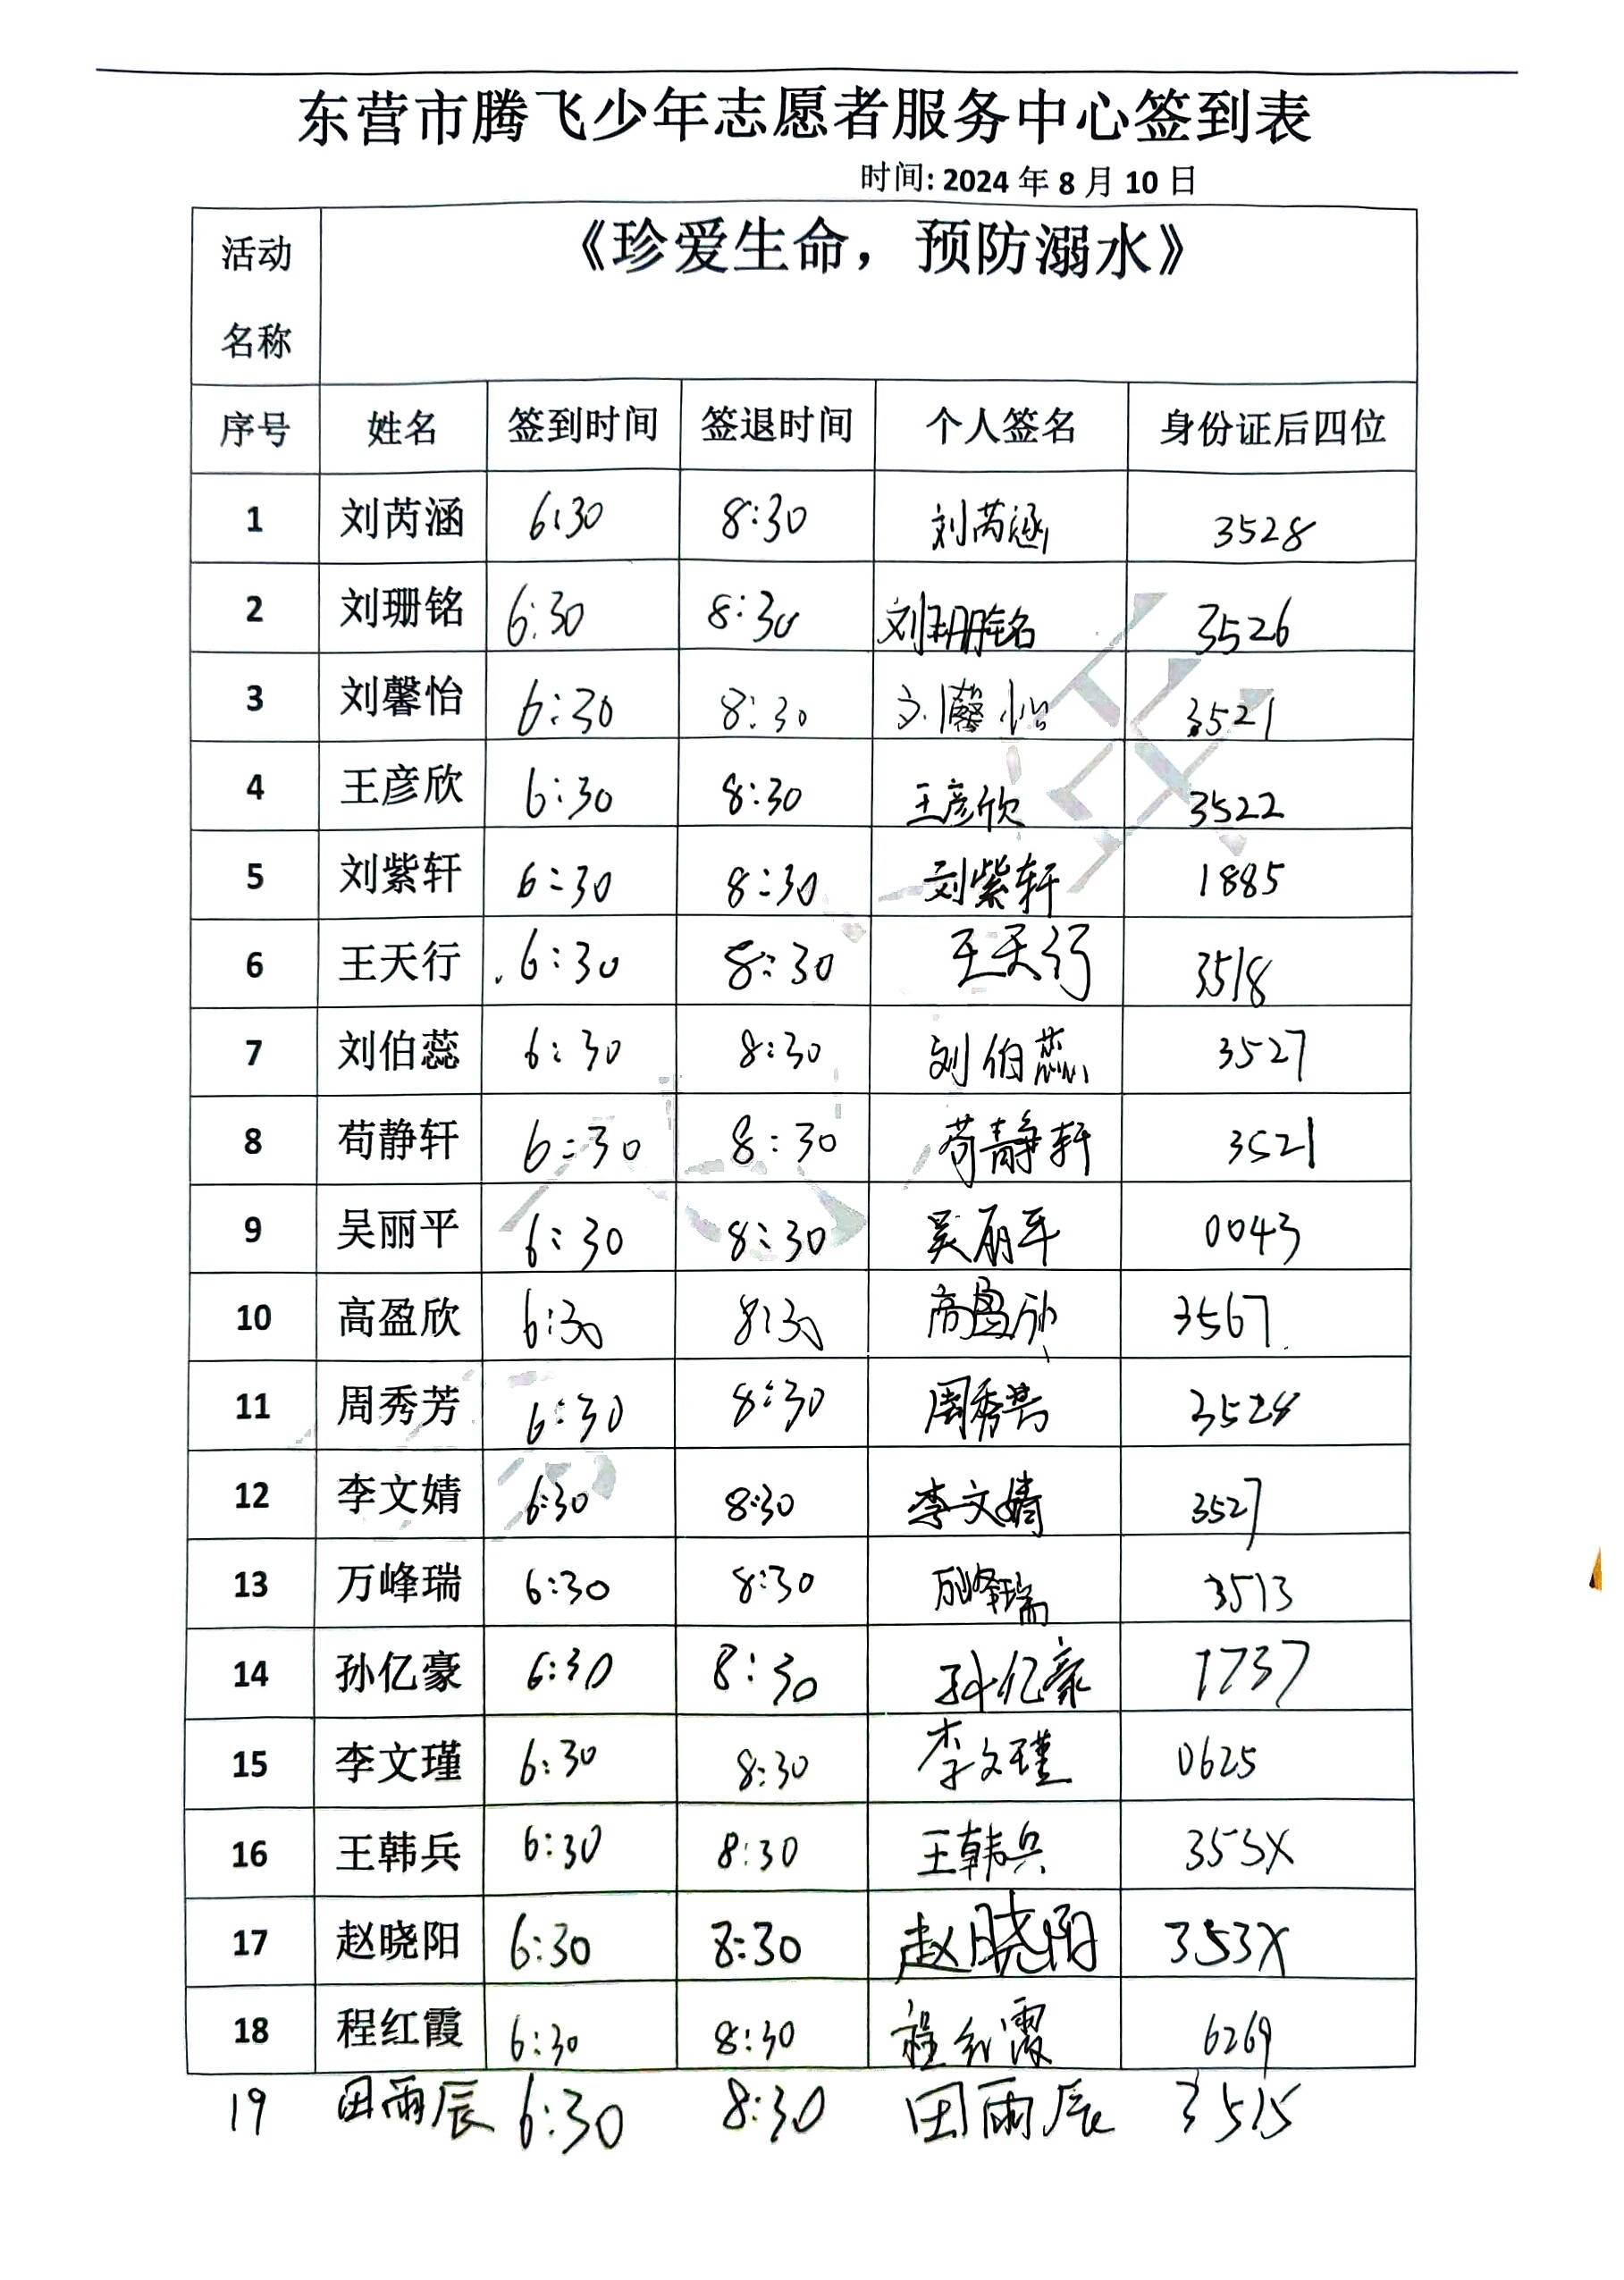 东营市腾飞少年志愿者服务中心签到表
时间: 2024 年 8 月 10 日
活动名称 《珍爱生命，预防溺水》
序号 姓名 签到时间 签退时间 个人签名 身份证后四位
1 刘芮涵 6:30 8:30 刘芮涵 3528
2 刘珊铭 6:30 8:30 刘珊铭 3526
3 刘馨怡 6:30 8:30 刘馨怡 3521
4 王彦欣 6:30 8:30 王彦欣 3522
5 刘紫轩 6:30 8:30 刘紫轩 1885
6 王天行 6:30 8:30 王天行 3518
7 刘伯蕊 6:30 8:30 刘伯蕊 3527
8 苟静轩 6:30 8:30 苟静轩 3521
9 吴丽平 6:30 8:30 吴丽平 0043
10 高盈欣 6:30 8:30 高盈欣 3567
11 周秀芳 6:30 8:30 周秀芳 3528
12 李文婧 6:30 8:30 李文婧 3527
13 万峰瑞 6:30 8:30 万峰瑞 3513
14 孙亿豪 6:30 8:30 孙亿豪 1737
15 李文瑾 6:30 8:30 李文瑾 0625
16 王韩兵 6:30 8:30 王韩兵 353X
17 赵晓阳 6:30 8:30 赵晓阳 353X
18 程红霞 6:30 8:30 程红霞 6269
19 田雨辰 6:30 8:30 田雨辰 3515